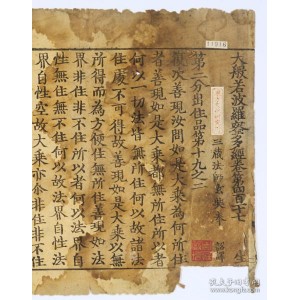 大般若波羅蜜多經卷第四百一十七
三藏法師玄奘奉 詔譯
第二分出住品第十九之二
復次善現汝問如是大乘為何所住
者善現如是大乘都無所住所以者
何以一切法皆無所住何以故諸法
住處不可得故善現如是大乘以無
所得而為方便住無所住善現如法
性無住非不住所以者何以法界自性法
界自性空故大乘亦爾非住非不住